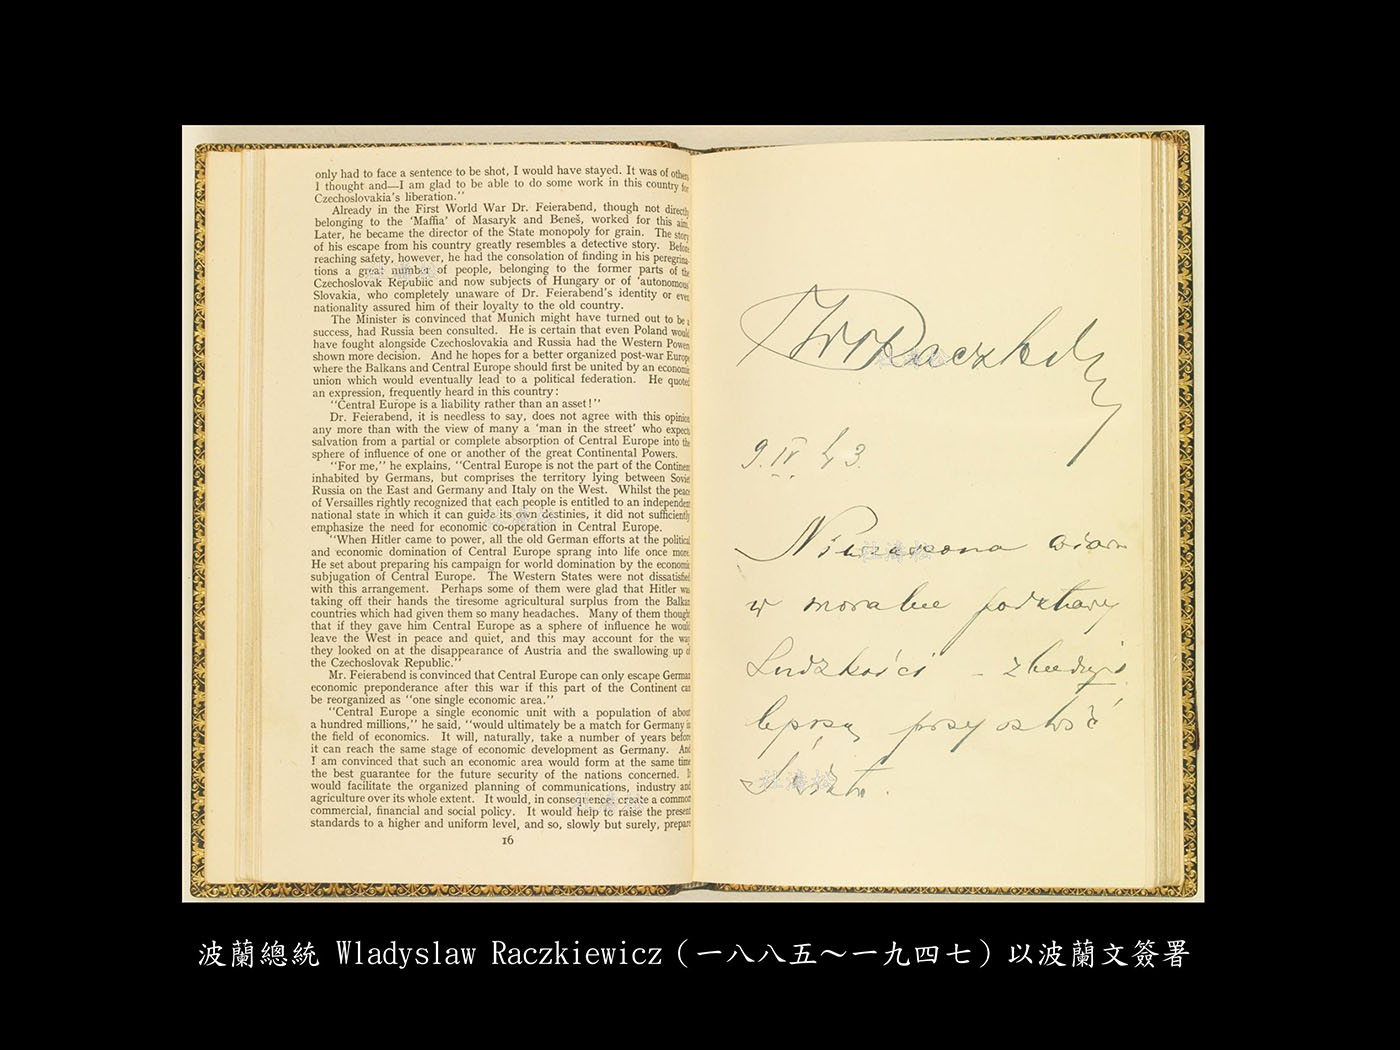 only had to face a sentence to be shot, I would have stayed. It was of others
I thought and—I am glad to be able to do some work in this country for
Czechoslovakia's liberation."
Already in the First World War Dr. Feierabend, though not directly
belonging to the 'Maffia' of Masaryk and Beneš, worked for this aim.
Later, he became the director of the State monopoly for grain. The story
of his escape from his country greatly resembles a detective story. Before
reaching safety, however, he had the consolation of finding in his peregrina-
tions a great number of people, belonging to the former parts of the
Czechoslovak Republic and now subjects of Hungary or of 'autonomous'
Slovakia, who completely unaware of Dr. Feierabend's identity or even
nationality assured him of their loyalty to the old country.
The Minister is convinced that Munich might have turned out to be a
success, had Russia been consulted. He is certain that even Poland would
have fought alongside Czechoslovakia and Russia had the Western Powers
shown more decision. And he hopes for a better organized post-war Europe
where the Balkans and Central Europe should first be united by an economic
union which would eventually lead to a political federation. He quoted
an expression, frequently heard in this country:
"Central Europe is a liability rather than an asset!"
Dr. Feierabend, it is needless to say, does not agree with this opinion
any more than with the view of many a 'man in the street' who expects
salvation from a partial or complete absorption of Central Europe into the
sphere of influence of one or another of the great Continental Powers.
"For me," he explains, "Central Europe is not the part of the Continent
inhabited by Germans, but comprises the territory lying between Soviet
Russia on the East and Germany and Italy on the West. Whilst the peace
of Versailles rightly recognized that each people is entitled to an independent
national state in which it can guide its own destinies, it did not sufficiently
emphasize the need for economic co-operation in Central Europe.
"When Hitler came to power, all the old German efforts at the political
and economic domination of Central Europe sprang into life once more.
He set about preparing his campaign for world domination by the economic
subjugation of Central Europe. The Western States were not dissatisfied
with this arrangement. Perhaps some of them were glad that Hitler was
taking off their hands the tiresome agricultural surplus from the Balkan
countries which had given them so many headaches. Many of them thought
that if they gave him Central Europe as a sphere of influence he would
leave the West in peace and quiet, and this may account for the way
they looked on at the disappearance of Austria and the swallowing up of
the Czechoslovak Republic."
Mr. Feierabend is convinced that Central Europe can only escape German
economic preponderance after this war if this part of the Continent can
be reorganized as "one single economic area."
"Central Europe a single economic unit with a population of about
a hundred millions," he said, "would ultimately be a match for Germany in
the field of economics. It will, naturally, take a number of years before
it can reach the same stage of economic development as Germany. And
I am convinced that such an economic area would form at the same time
the best guarantee for the future security of the nations concerned. It
would facilitate the organized planning of communications, industry and
agriculture over its whole extent. It would, in consequence, create a common
commercial, financial and social policy. It would help to raise the present
standards to a higher and uniform level, and so, slowly but surely, prepare
16
9.IV.43.
wiara
w moralne podstawy
Ludzkości - zbuduje
lepszą przyszłość
świata.
波蘭總統 Wladyslaw Raczkiewicz（一八八五～一九四七）以波蘭文簽署